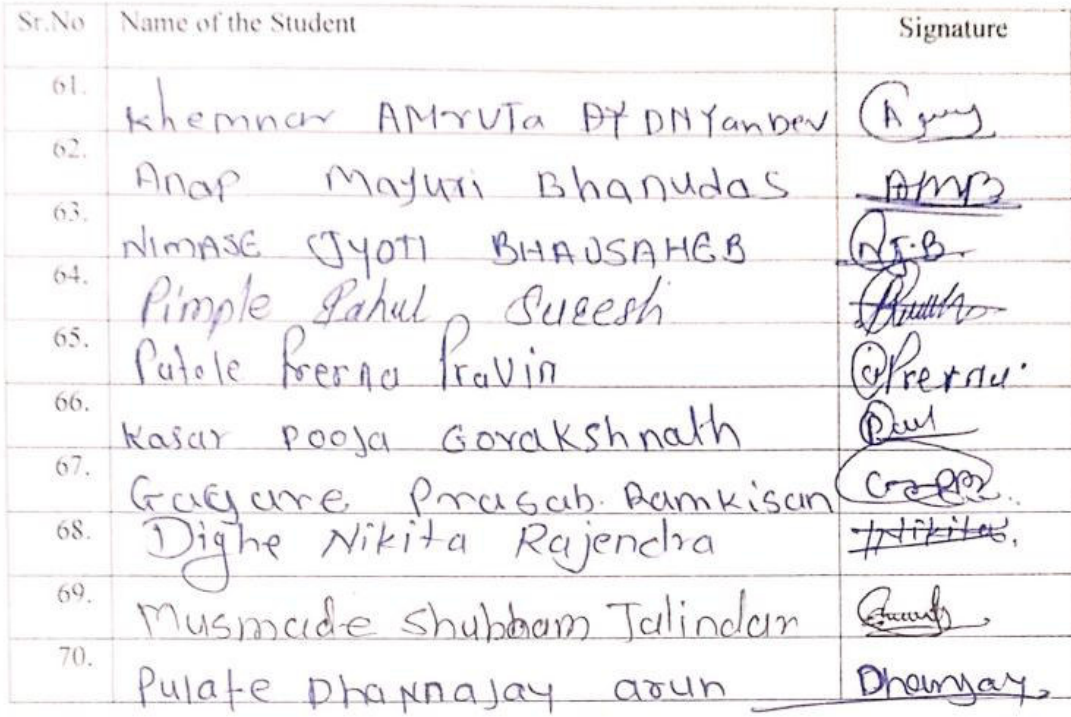 Sr.No Name of the Student Signature
61. Khemnar AMruTa DYDNYanDev
62. Anap Mayuri Bhanudas AMB
63. NIMASE JYOTI BHAUSAHEB NJ.B
64. Pimple Rahul Suresh
65. Patole Prerna Pravin Prerna
66. Kasar Pooja Gorakshnath
67. Gagare Prasad. Ramkisan
68. Dighe Nikita Rajendra Nikita
69. Musmade Shubham Jalindar
70. Pulate Dhannajay arun Dhanjay